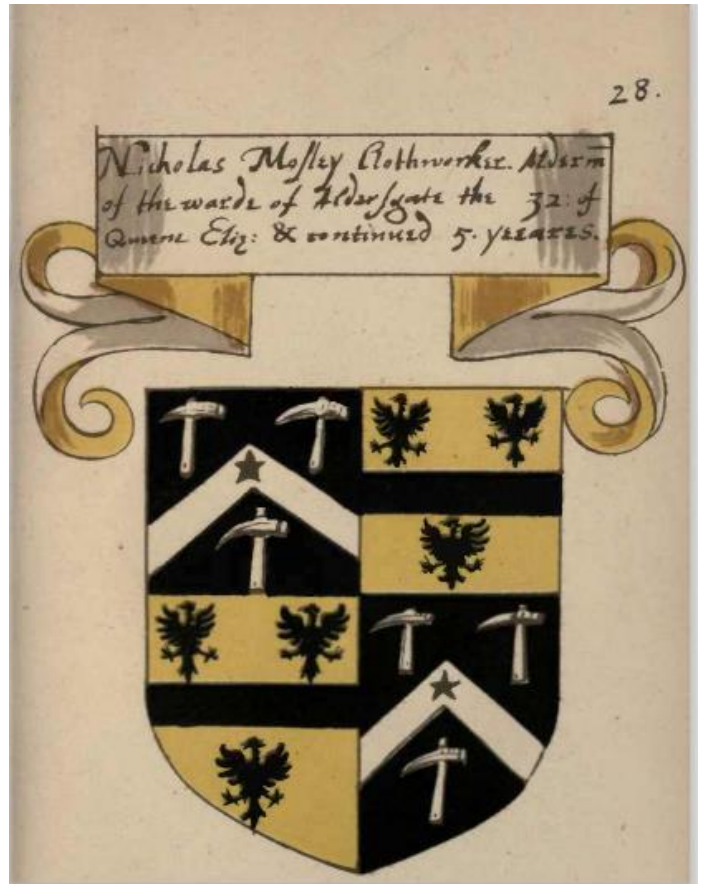 28.
Nicholas Mosley Clothworker. Alderm̃
of the warde of Aldersgate the 32: of
Queene Eliz: & continued 5. yeeares.